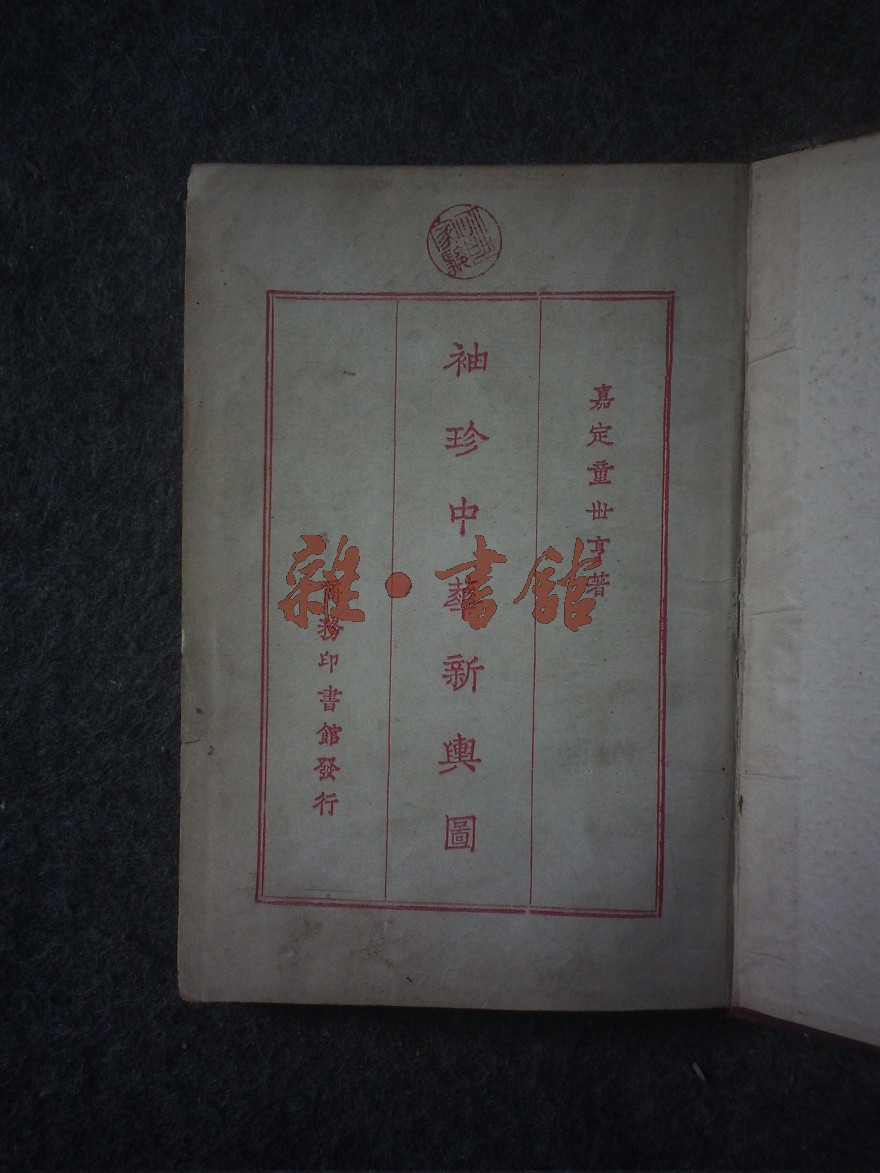 嘉定童世亨著
袖珍中華新輿圖
商務印書館發行
雜·書館